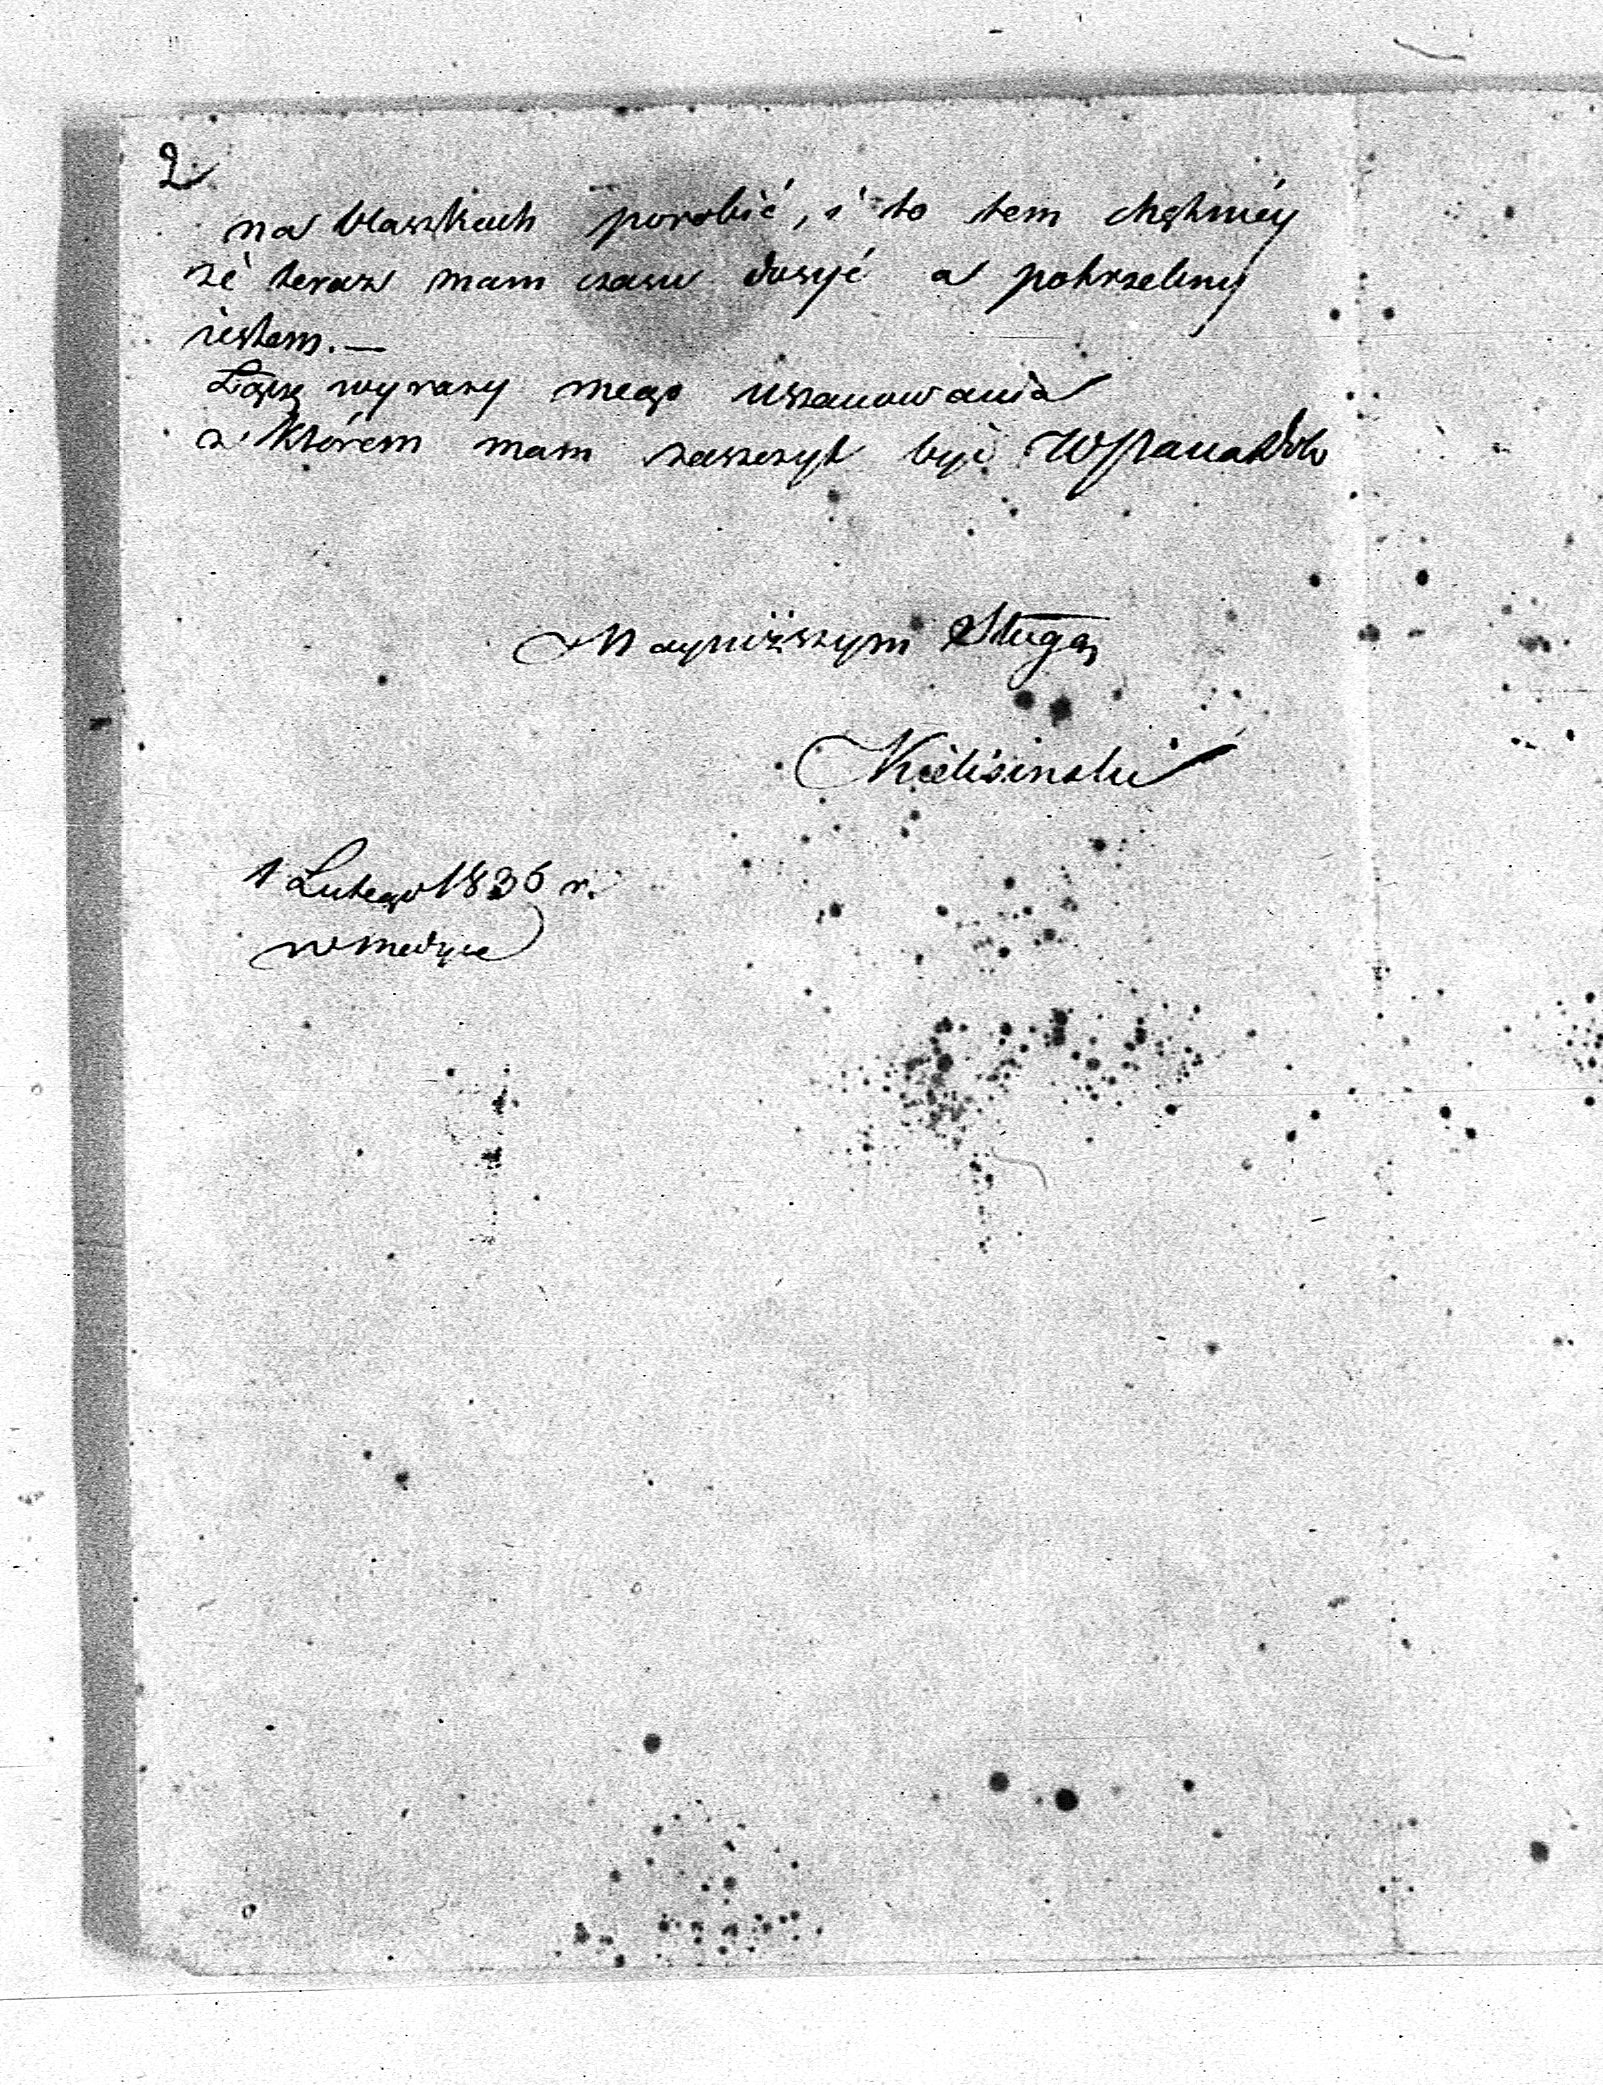 2
na blaszkach porobić, i to tem chętniéy
że teraz mam czasu dosyć a potrzebny
iestem. —
Łączę wyrazy mego uszanowania
z którem mam zaszczyt być WPana Dob
Nayniższym Sługą
Kielisinski
1 Lutego 1836 r.
w Medyce